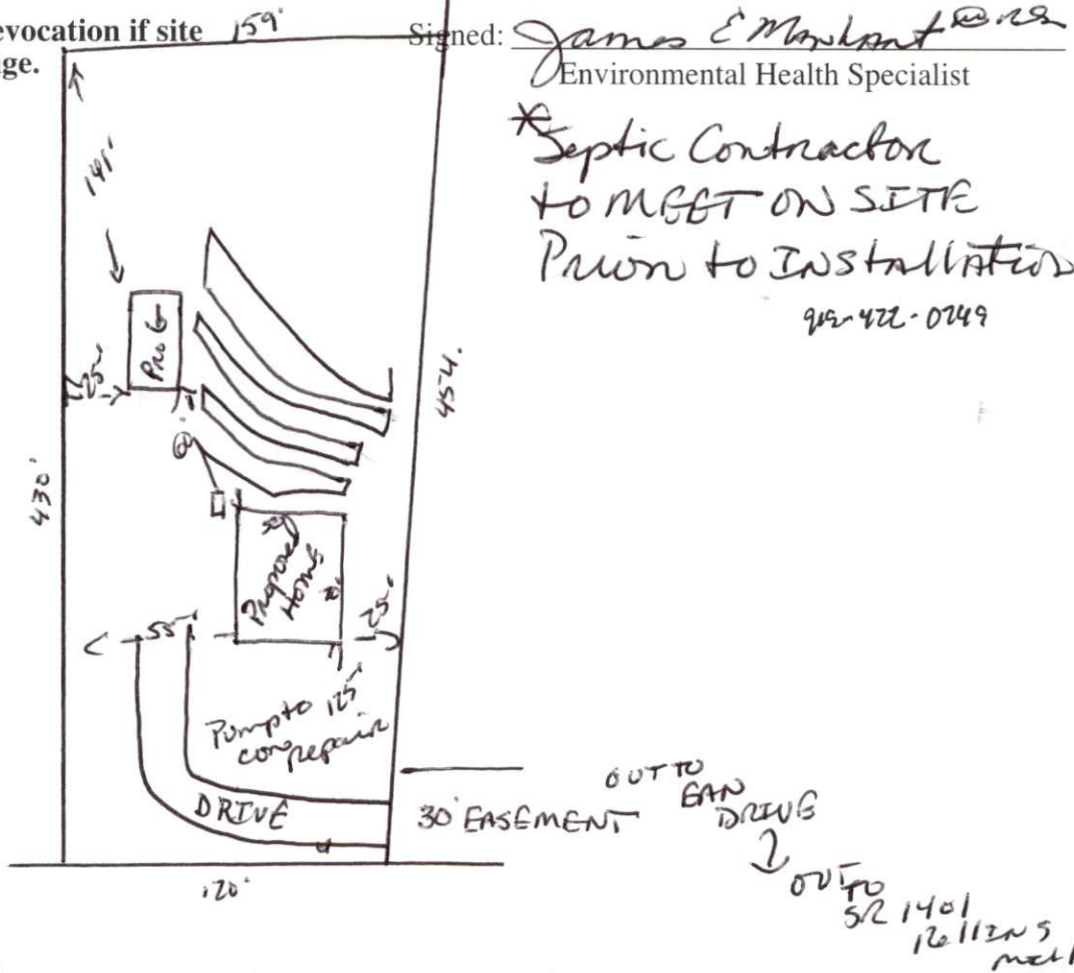 evocation if site
ge.
159'
Signed: James E Marchant
Environmental Health Specialist
*Septic Contractor
to MEET ON SITE
Prior to INStallAtion
919-422-0249
141'
Pro G
25'
430'
454'
Proposed
Home
55'
25'
Pump to 125'
con repair
DRIVE
30' EASEMENT
OUT TO
EAN
DRIVE
OUT
TO
SR 1401
120'